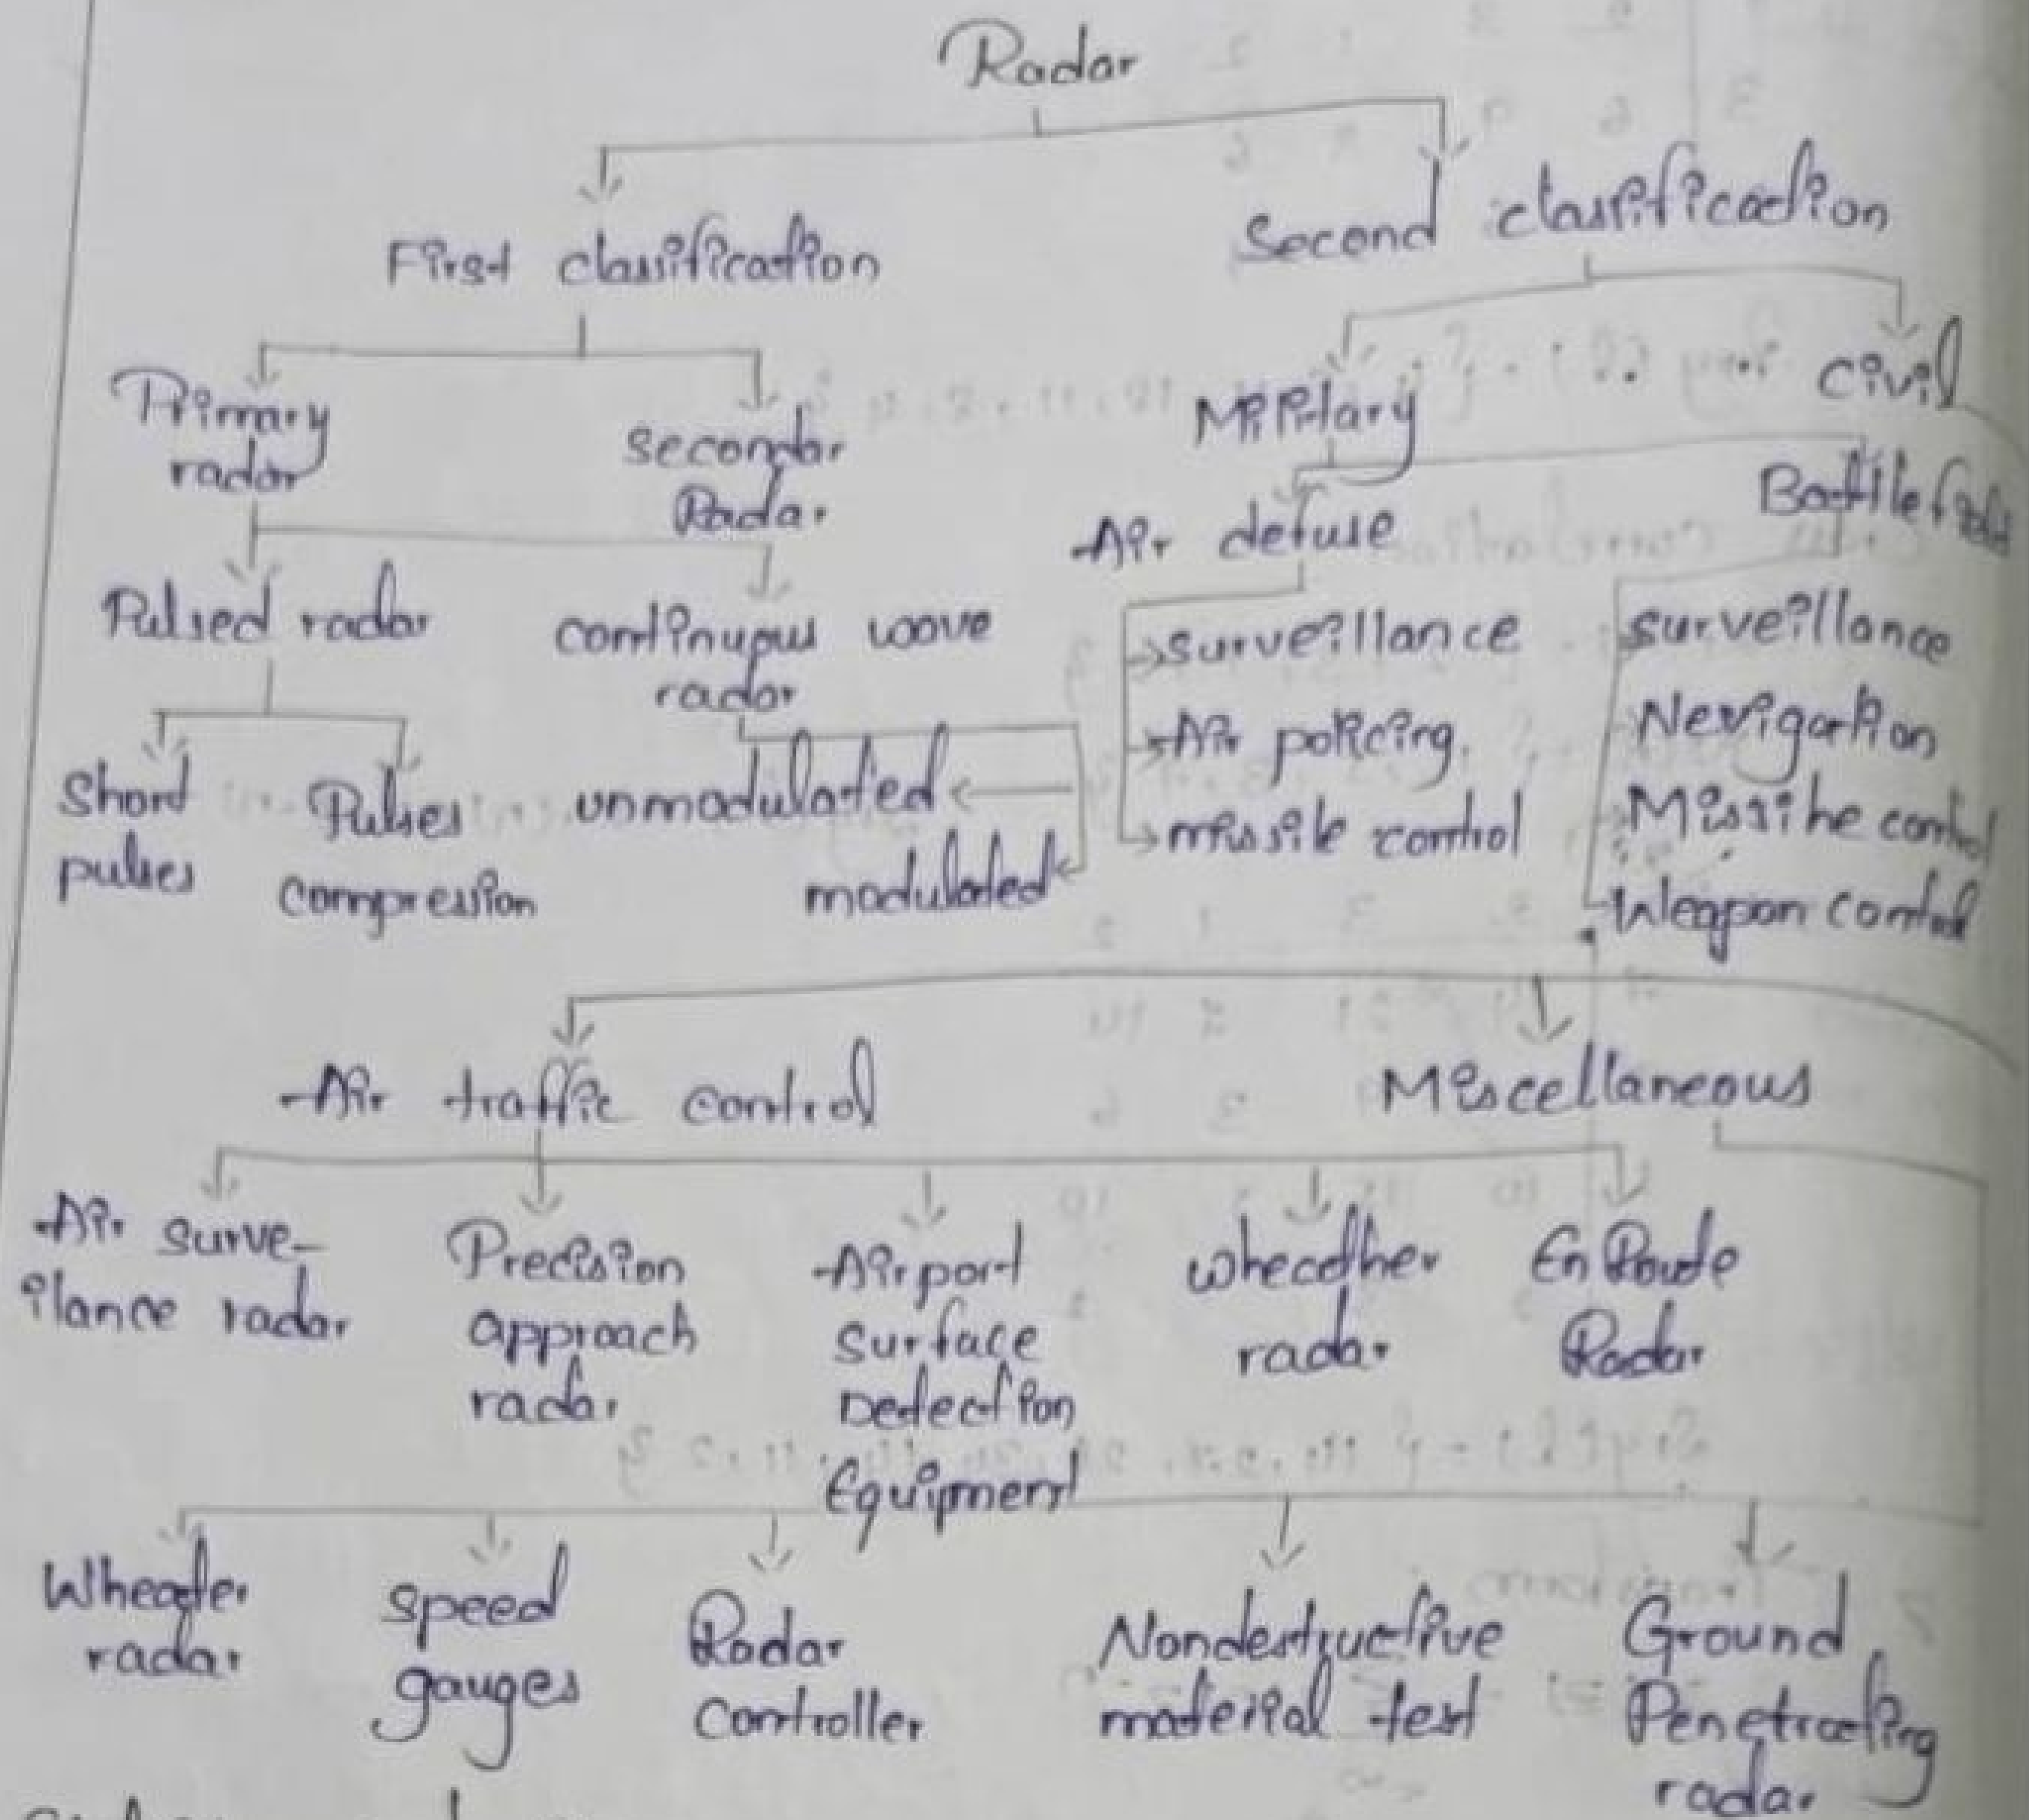 Radar
First classification
Second classification
Primary
radar
secondar
Radar
Military
Civil
Air defuse
Battile
Pulsed radar
continuous wave
radar
surveillance
Air policing.
missile control
surveillance
Nevigation
Missihe control
Weapon control
Short
pulses
Pulses
compression
unmodulated
modulated
Air traffic control
Miscellaneous
Air surve-
ilance radar
Precision
approach
radar
Airport
surface
Detection
Equipment
wheather
radar
En Route
Radar
Wheater
radar
speed
gauges
Radar
controller
Nondestructive
material test
Ground
Penetrating
radar